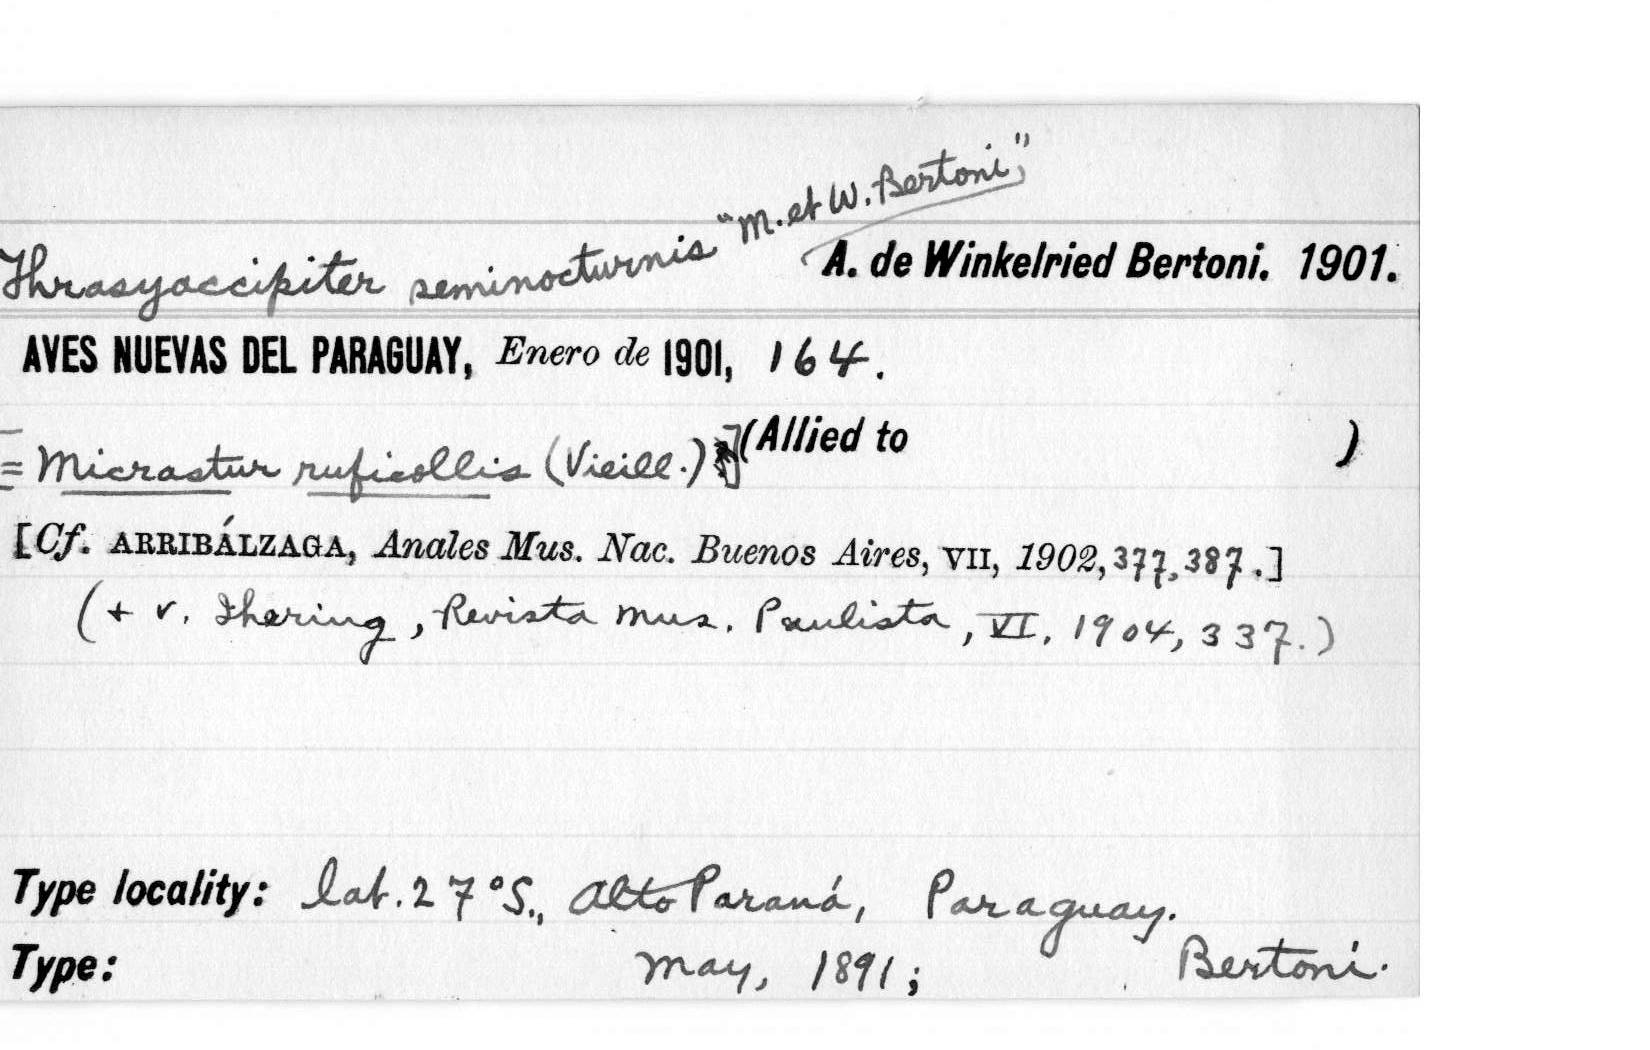 Thrasyaccipiter seminocturnis "M. et W. Bertoni"
A. de Winkelried Bertoni. 1901.
AVES NUEVAS DEL PARAGUAY, Enero de 1901, 164.
= Micrastur ruficollis (Vieill.)] (Allied to )
[Cf. ARRIBÁLZAGA, Anales Mus. Nac. Buenos Aires, VII, 1902, 377, 387.]
(+ v. Ihering, Revista Mus. Paulista, VI, 1904, 337.)
Type locality: lat. 27°S., Alto Paraná, Paraguay.
Type: May, 1891; Bertoni.